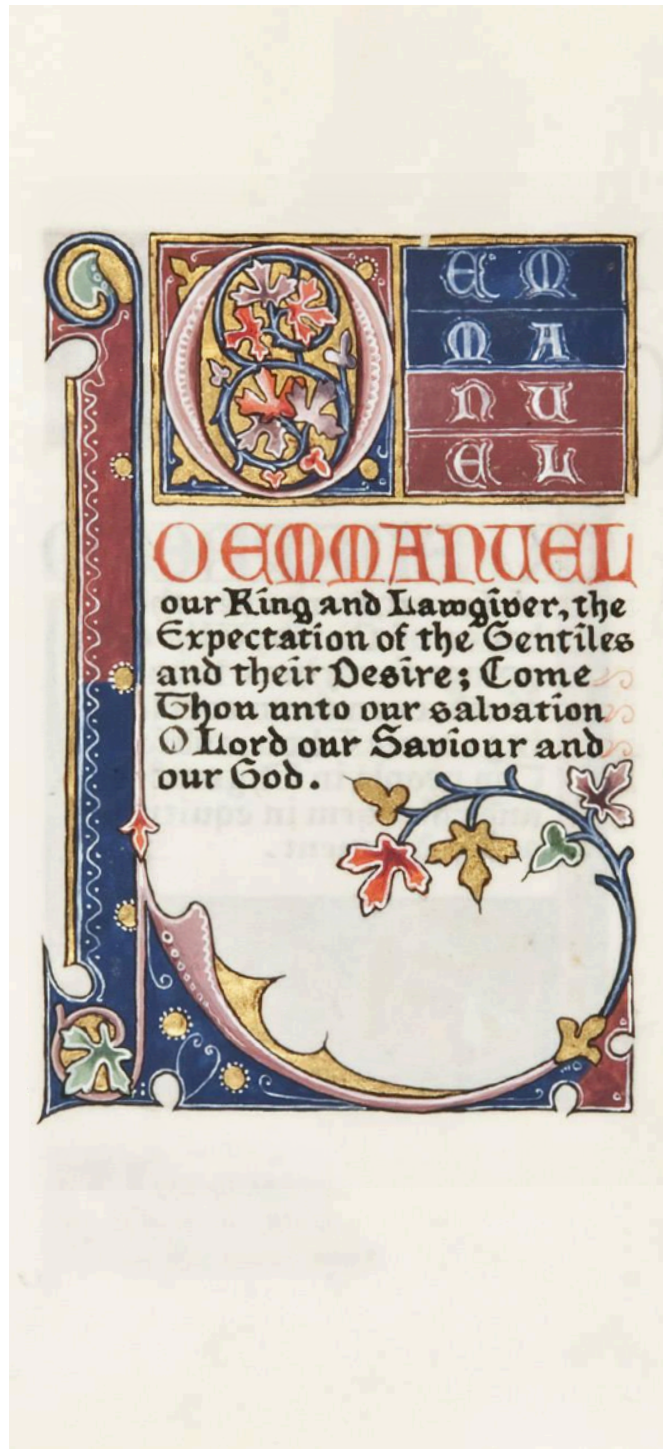 O
EM
MA
NU
EL
O EMMANUEL
our King and Lawgiver, the
Expectation of the Gentiles
and their Desire; Come
Thou unto our salvation
O Lord our Saviour and
our God.